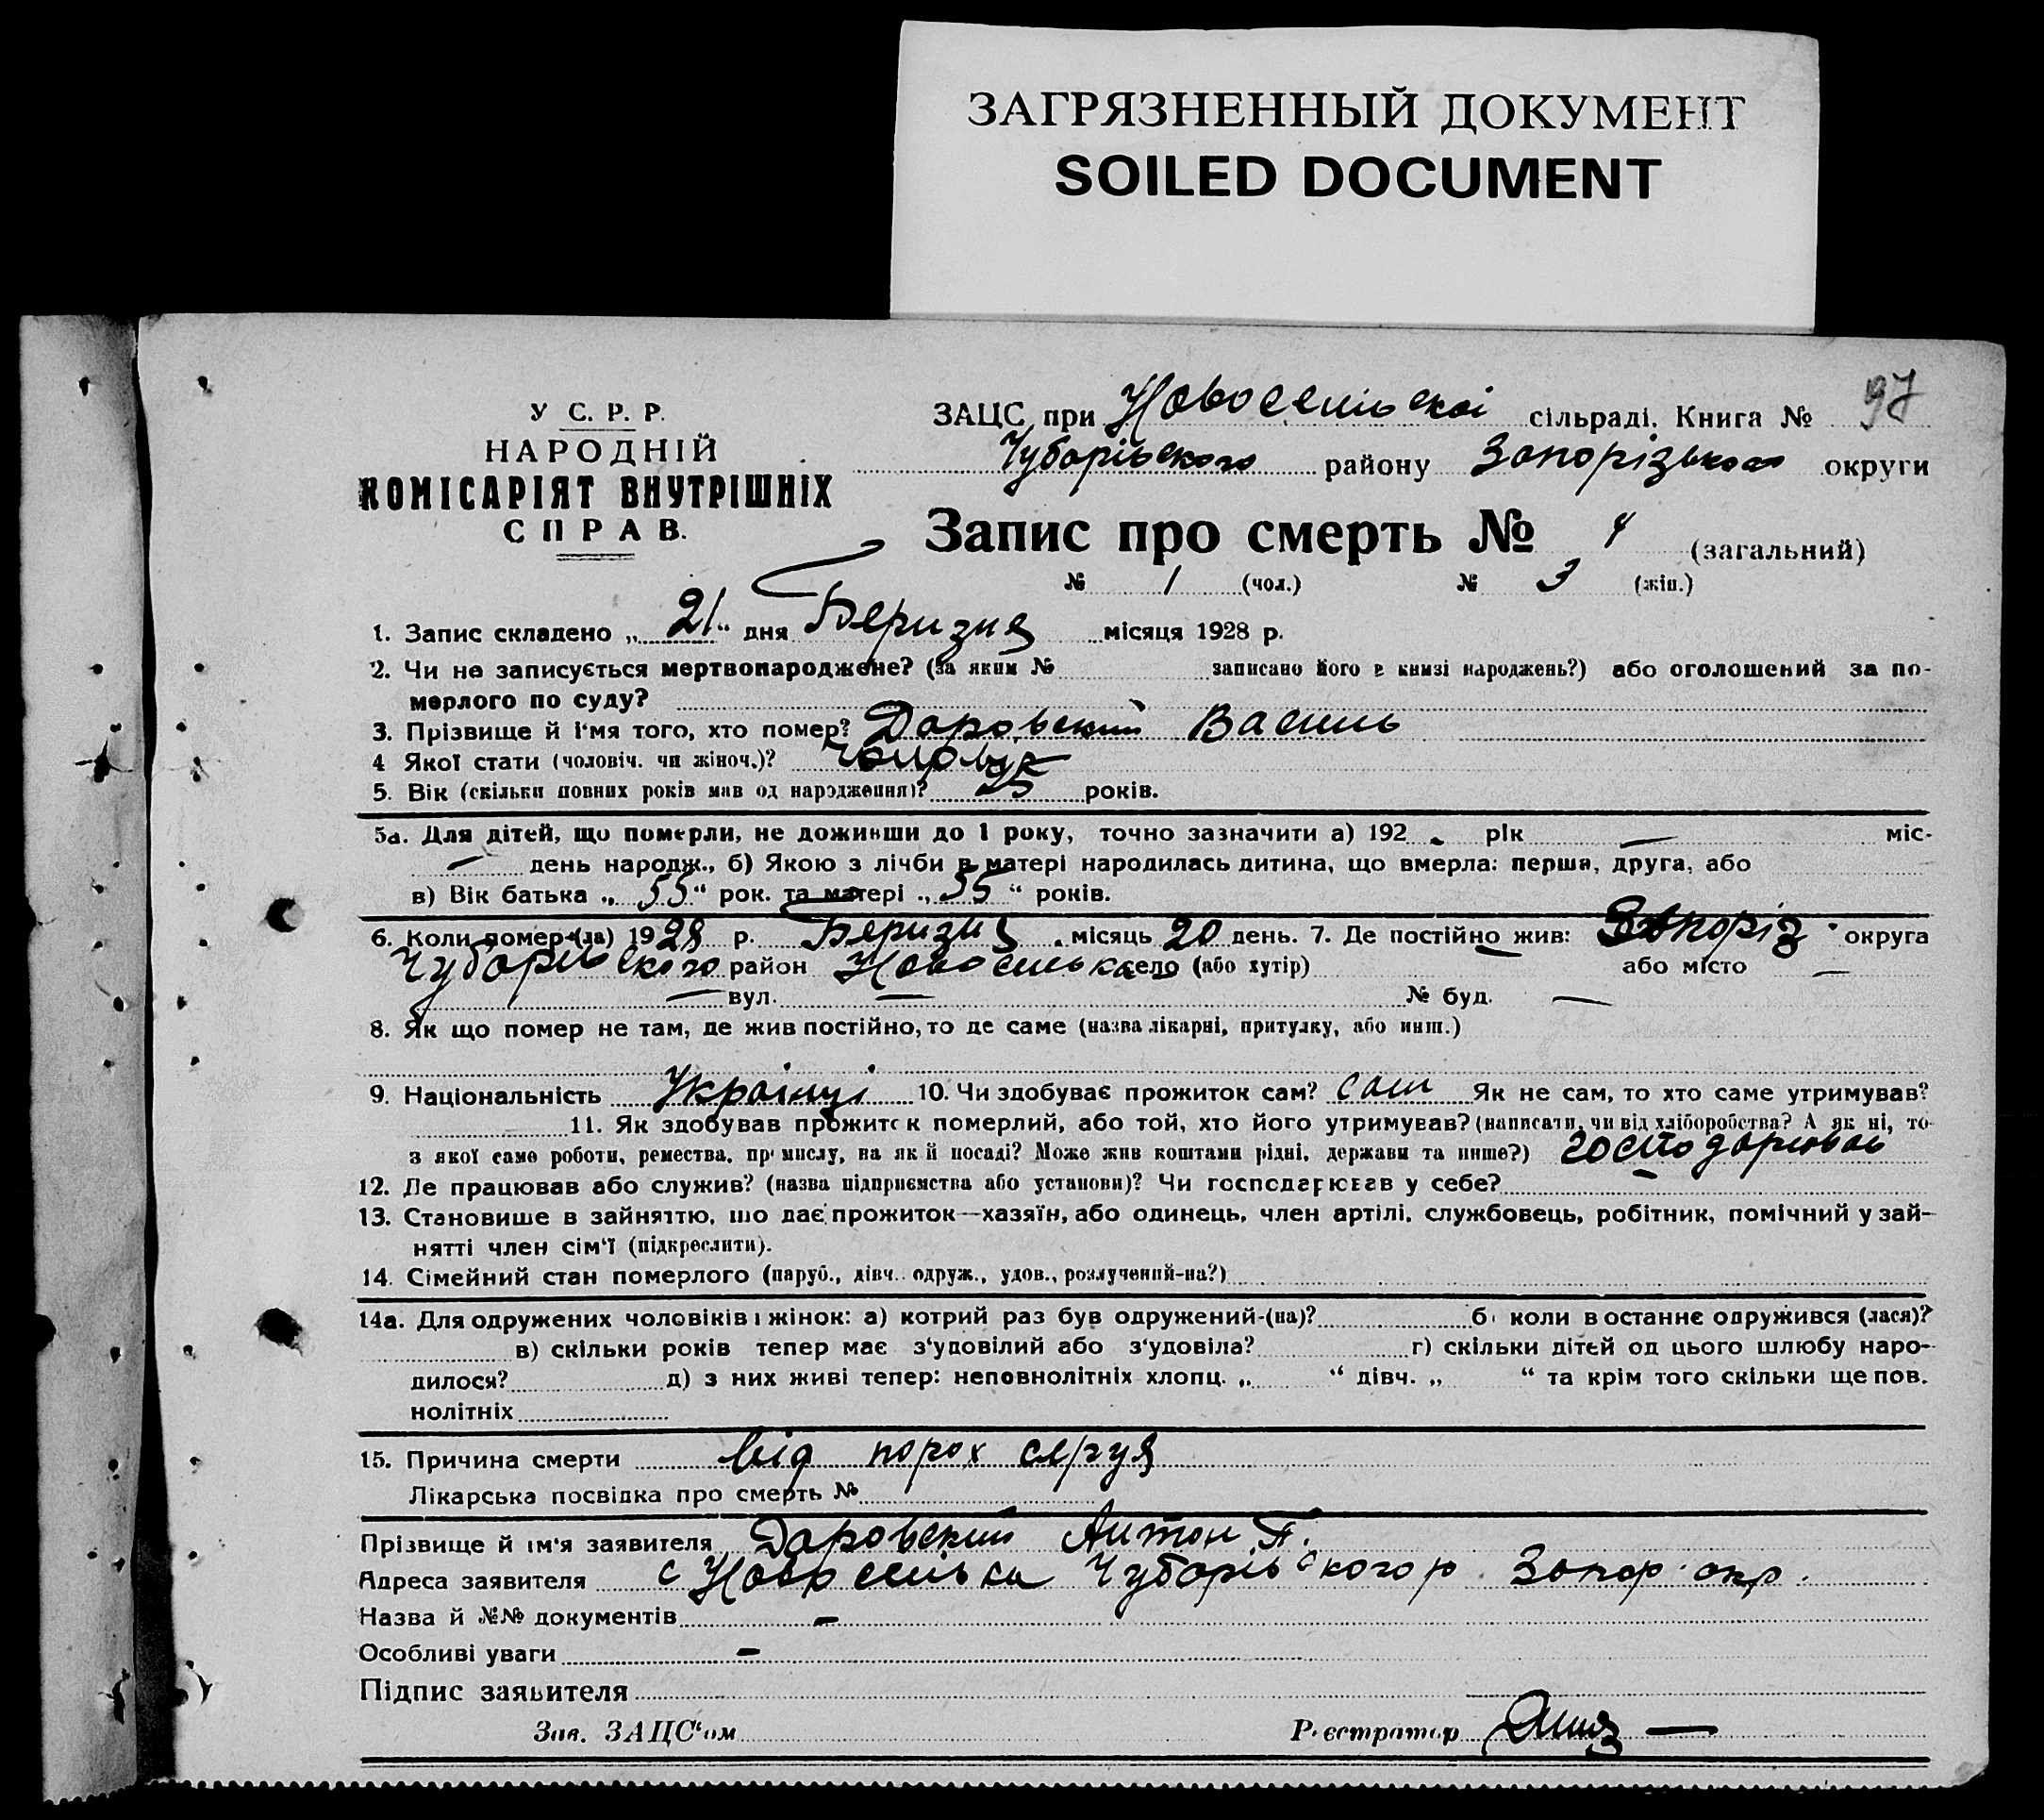 ЗАГРЯЗНЕННЫЙ ДОКУМЕНТ
SOILED DOCUMENT
97
У С. Р. Р.
НАРОДНІЙ
КОМІСАРІЯТ ВНУТРІШНІХ
СПРАВ.
ЗАЦС при Новосельської сільраді. Книга №
Чубарівського району Запорізької округи
Запис про смерть № 4 (загальний)
№ 1 (чол.) № 3 (жін.)
1. Запис складено „ 21 “ дня Беризня місяця 1928 р.
2. Чи не записується мертвонароджене? (за яким № записано його в книзі народжень?) або оголошений за по-
мерлого по суду?
3. Прізвище й і'мя того, хто помер? Даровський Василь
4 Якої стати (чоловіч. чи жіноч.)?
5. Вік (скільки повних років мав од народження)? років.
5а. Для дітей, що померли, не доживши до 1 року, точно зазначити а) 192 - рік — міс-
— день народж., б) Якою з лічби в матері народилась дитина, що вмерла: перша, друга, або
в) Вік батька „ 55 “ рок. та матері „ 55 “ років.
6. Коли помер-(ла) 1928 р. Беризня місяць 20 день. 7. Де постійно жив: Запоріз округа
Чубарівського район Новоселівка село (або хутір) або місто —
— вул. — № буд. —
8. Як що помер не там, де жив постійно, то де саме (назва лікарні, притулку, або инш.)
9. Національність Українці 10. Чи здобуває прожиток сам? сам Як не сам, то хто саме утримував?
11. Як здобував прожиток померлий, або той, хто його утримував? (написати, чи від хліборобства? А як ні, то
з якої саме роботи, ремества, промислу, на якій посаді? Може жив коштами рідні, держави та инше?) господарював
12. Де працював або служив? (назва підприємства або установи)? Чи господарював у себе?
13. Становише в зайняттю, що дає прожиток—хазяїн, або одинець, член артілі, службовець, робітник, помічний у зай-
нятті член сім'ї (підкреслити).
14. Сімейний стан померлого (паруб., дівч. одруж., удов., розлучений-на?)
14а. Для одружених чоловіків і жінок: а) котрий раз був одружений-(на)? б) коли в останнє одружився (лася)?
в) скільки років тепер має з'удовілий або з'удовіла? г) скільки дітей од цього шлюбу наро-
дилося? д) з них живі тепер: неповнолітніх хлопц. „ “ дівч. „ “ та крім того скільки ще пов.
нолітніх
15. Причина смерти від порох серця
Лікарська посвідка про смерть №
Прізвище й ім'я заявителя Даровский Антон П.
Адреса заявителя с Новоселівка Чубарівського р. Запор. окр.
Назва й №№ документів -
Особливі уваги -
Підпис заявителя
Зав. ЗАЦС'ом Реєстратор